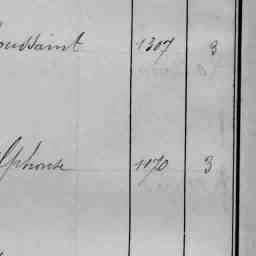 oussaint 1307 3
lphonse 1170 3